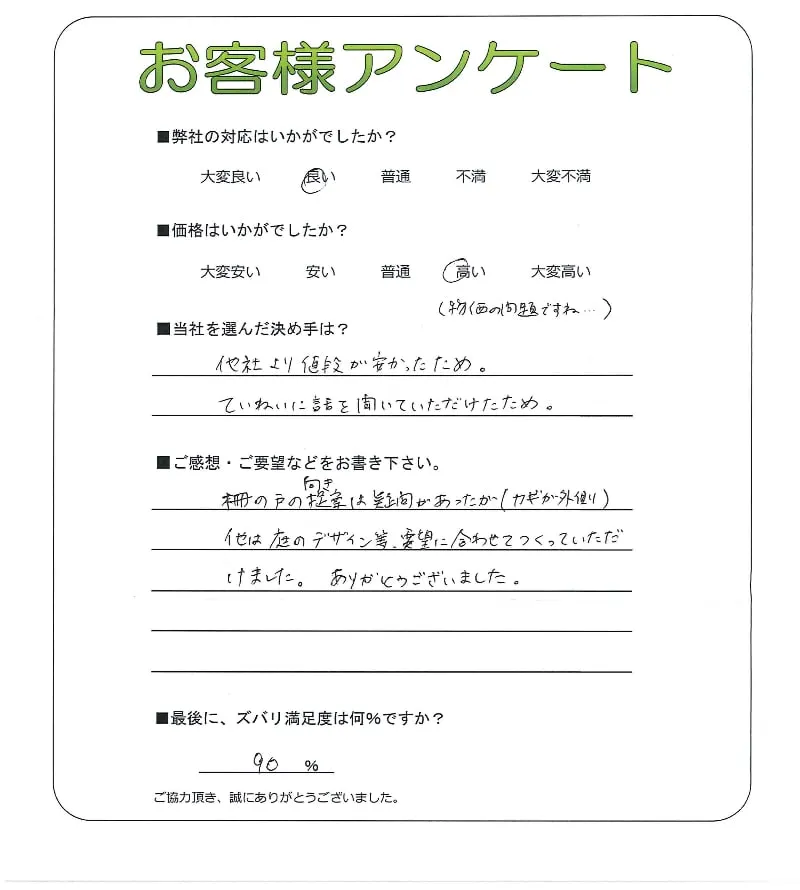 お客様アンケート
■弊社の対応はいかがでしたか？
大変良い 良い 普通 不満 大変不満
■価格はいかがでしたか？
大変安い 安い 普通 高い 大変高い
(物価の問題ですね…)
■当社を選んだ決め手は？
他社より値段が安かったため。
ていねいに話を聞いていただけたため。
■ご感想・ご要望などをお書き下さい。
向き
柵の戸の提案は疑問があったが(カギが外側)
他は庭のデザイン等、要望に合わせてつくっていただ
けました。 ありがとうございました。
■最後に、ズバリ満足度は何％ですか？
90 %
ご協力頂き、誠にありがとうございました。